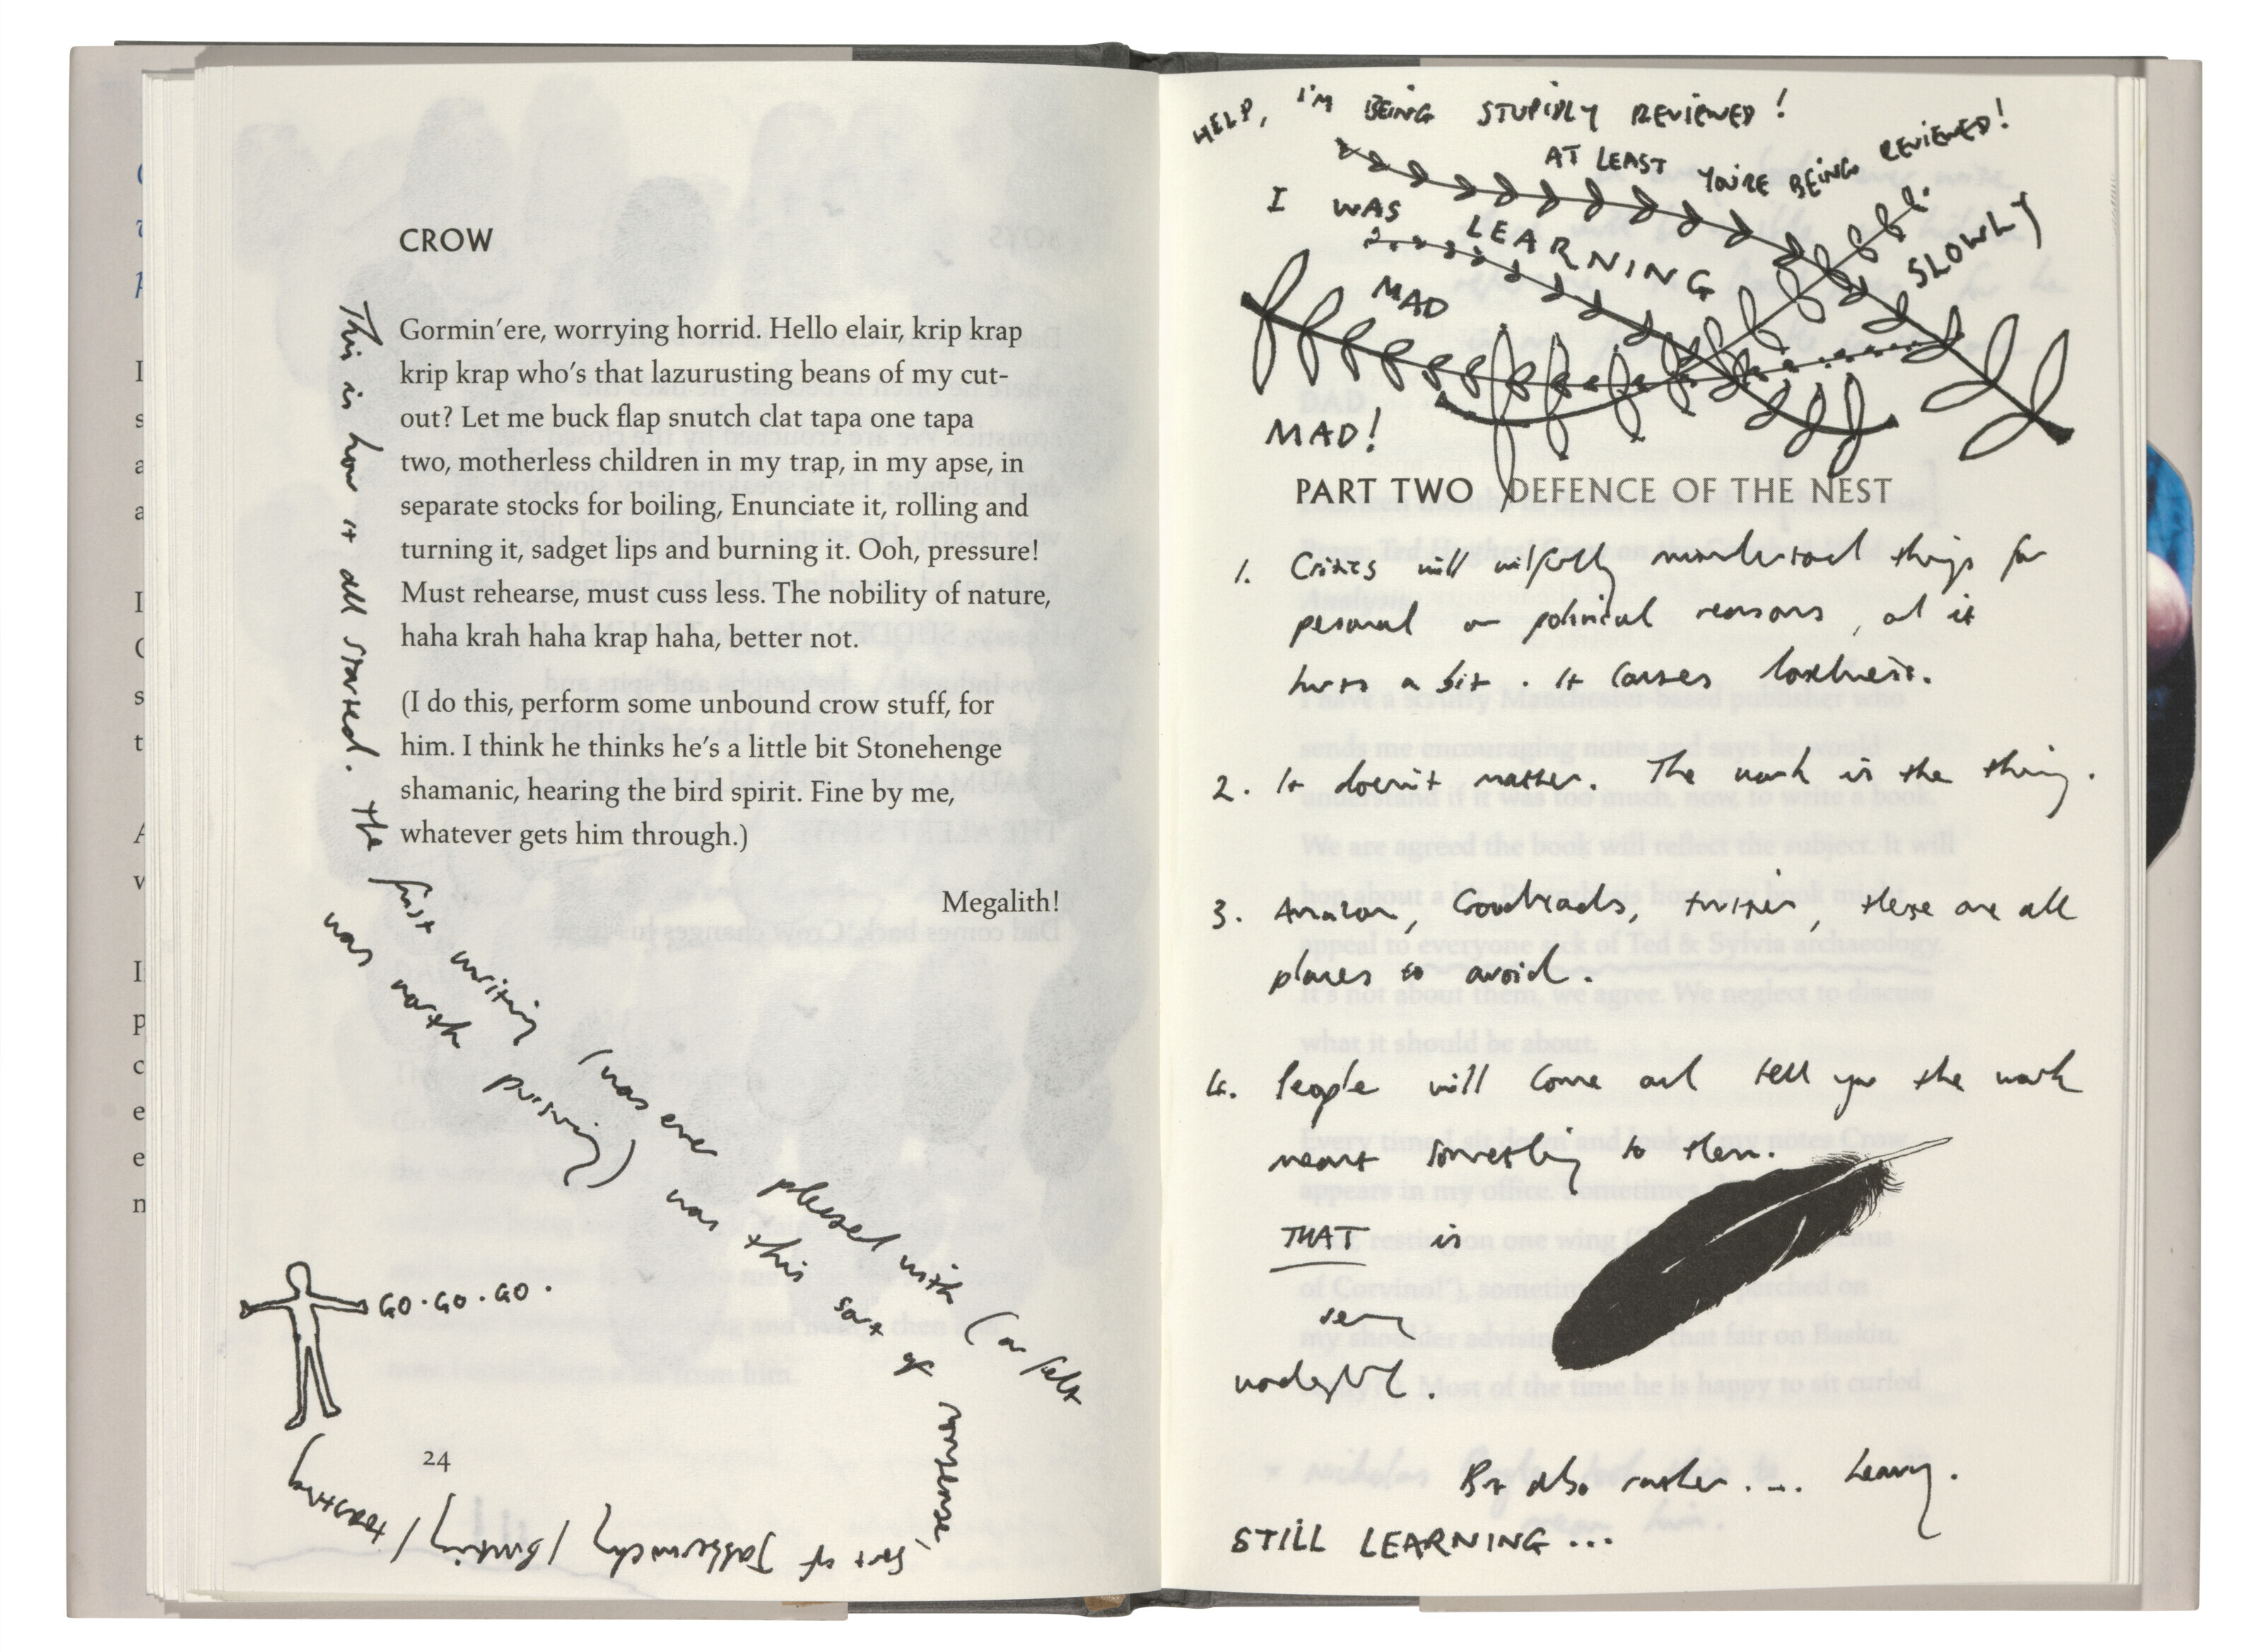 CROW
Gormin’ere, worrying horrid. Hello elair, krip krap
krip krap who’s that lazurusting beans of my cut-
out? Let me buck flap snutch clat tapa one tapa
two, motherless children in my trap, in my apse, in
separate stocks for boiling, Enunciate it, rolling and
turning it, sadget lips and burning it. Ooh, pressure!
Must rehearse, must cuss less. The nobility of nature,
haha krah haha krap haha, better not.
(I do this, perform some unbound crow stuff, for
him. I think he thinks he’s a little bit Stonehenge
shamanic, hearing the bird spirit. Fine by me,
whatever gets him through.)
Megalith!
This is how it all started. The first writing I was ever pleased with (or felt
was worth pursuing) was this sort of nonsense,
sort of Jabberwocky / Bunting /
GO. GO. GO.
24
HELP, I'M BEING STUPIDLY REVIEWED!
AT LEAST YOU'RE BEING REVIEWED!
I WAS LEARNING SLOWLY
MAD
MAD!
PART TWO DEFENCE OF THE NEST
1. Critics will wilfully misunderstand things for
personal or political reasons, and it
hurts a bit. It causes
2. It doesn't matter. The work is the thing.
3. Amazon, Goodreads, twitter, these are all
places to avoid.
4. People will come and tell you the work
meant something to them.
THAT is
very
wonderful.
But also rather.... heavy.
STILL LEARNING...